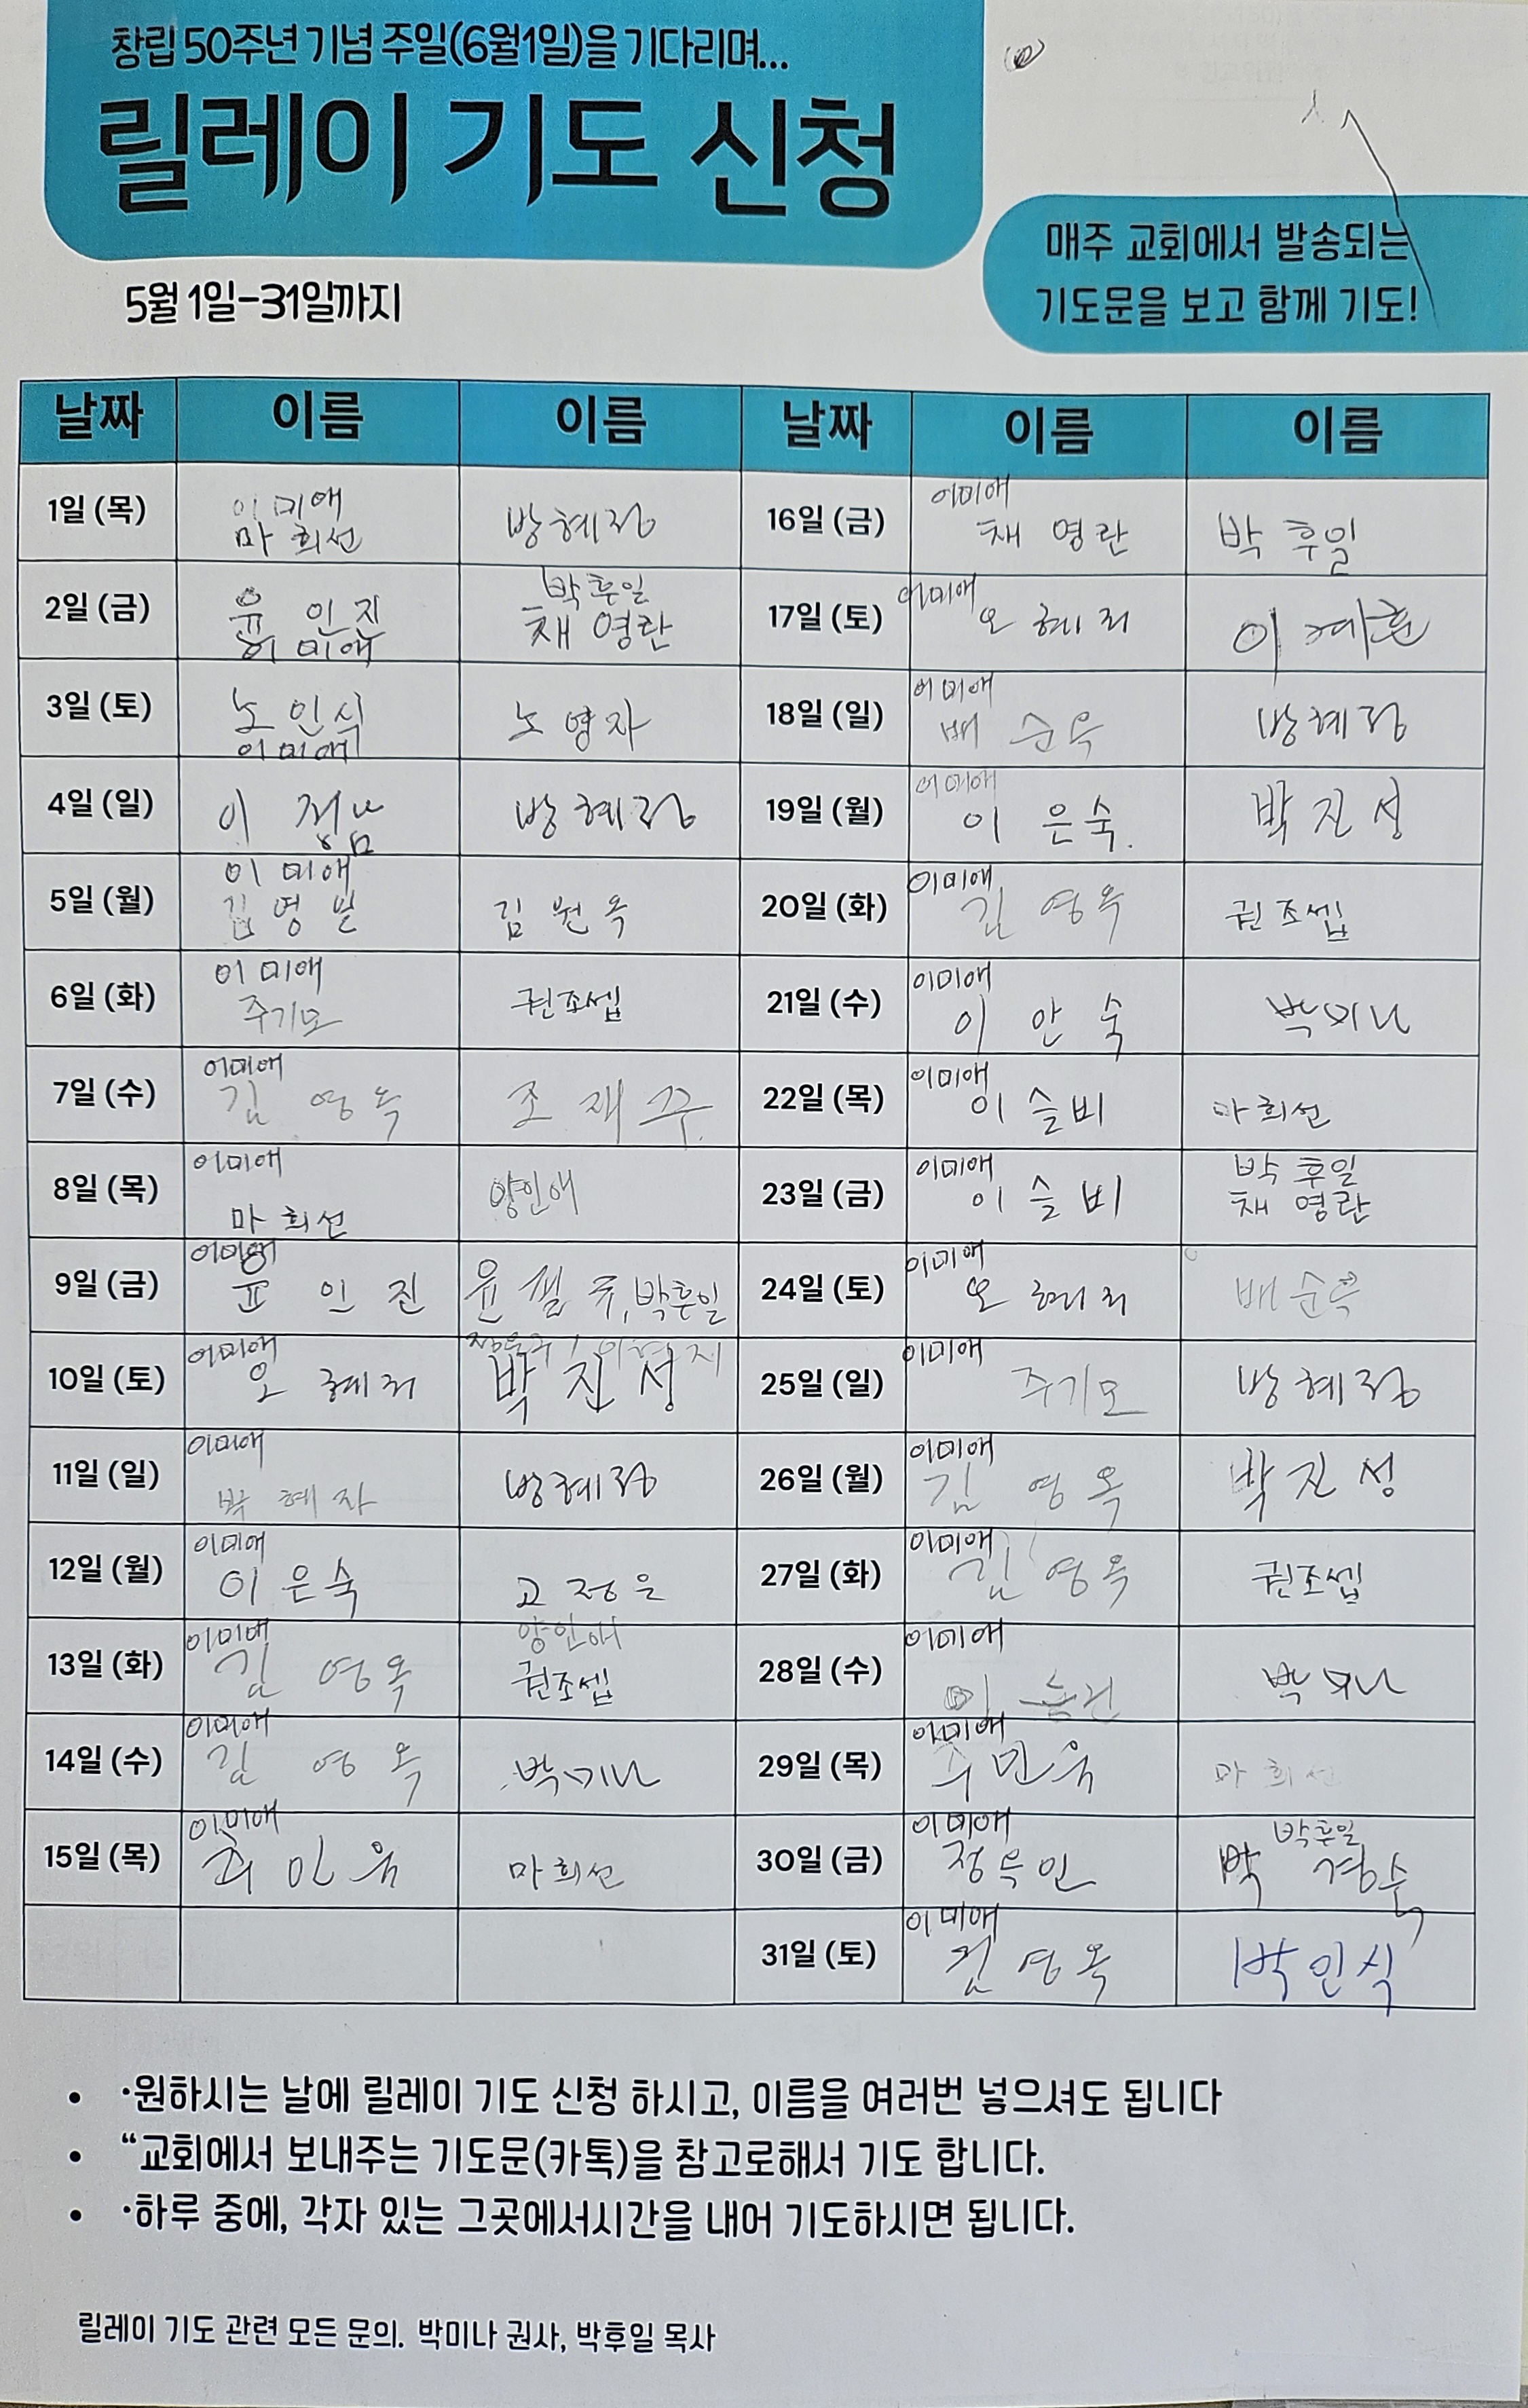 창립 50주년 기념 주일(6월1일)을 기다리며...
릴레이 기도 신청
매주 교회에서 발송되는
기도문을 보고 함께 기도!
5월 1일-31일까지
날짜 이름 이름 날짜 이름 이름
1일 (목) 이미애 마희선 방혜정 16일 (금) 이미애 채영란 박후일
2일 (금) 윤인진 이미애 박후일 채영란 17일 (토) 이미애 오혜리
3일 (토) 노인식 이미애 노영자 18일 (일) 이미애 배순옥 방혜정
4일 (일) 이정남 방혜정 19일 (월) 이미애 이은숙. 박진성
5일 (월) 이미애 김영빈 김원옥 20일 (화) 이미애 김영옥 권조셉
6일 (화) 이미애 주기모 권조셉 21일 (수) 이미애 이안숙 박미나
7일 (수) 이미애 김영옥 조재구 22일 (목) 이미애 이슬비 마희선
8일 (목) 이미애 마희선 양인애 23일 (금) 이미애 이슬비 박후일 채영란
9일 (금) 이미애 윤인진 윤필주, 박후일 24일 (토) 이미애 오혜리 배순옥
10일 (토) 이미애 오혜리 박진성 25일 (일) 이미애 주기모 방혜정
11일 (일) 이미애 박혜자 방혜정 26일 (월) 이미애 김영옥 박진성
12일 (월) 이미애 이은숙 고정은 27일 (화) 이미애 김영옥 권조셉
13일 (화) 이미애 김영옥 양인애 권조셉 28일 (수) 이미애 박미나
14일 (수) 이미애 김영옥 박미나 29일 (목) 이미애 마희선
15일 (목) 이미애 마희선 30일 (금) 이미애 박후일 박경순
31일 (토) 이미애 김영옥 박인식
• ·원하시는 날에 릴레이 기도 신청 하시고, 이름을 여러번 넣으셔도 됩니다
• “교회에서 보내주는 기도문(카톡)을 참고로해서 기도 합니다.
• ·하루 중에, 각자 있는 그곳에서시간을 내어 기도하시면 됩니다.
릴레이 기도 관련 모든 문의. 박미나 권사, 박후일 목사